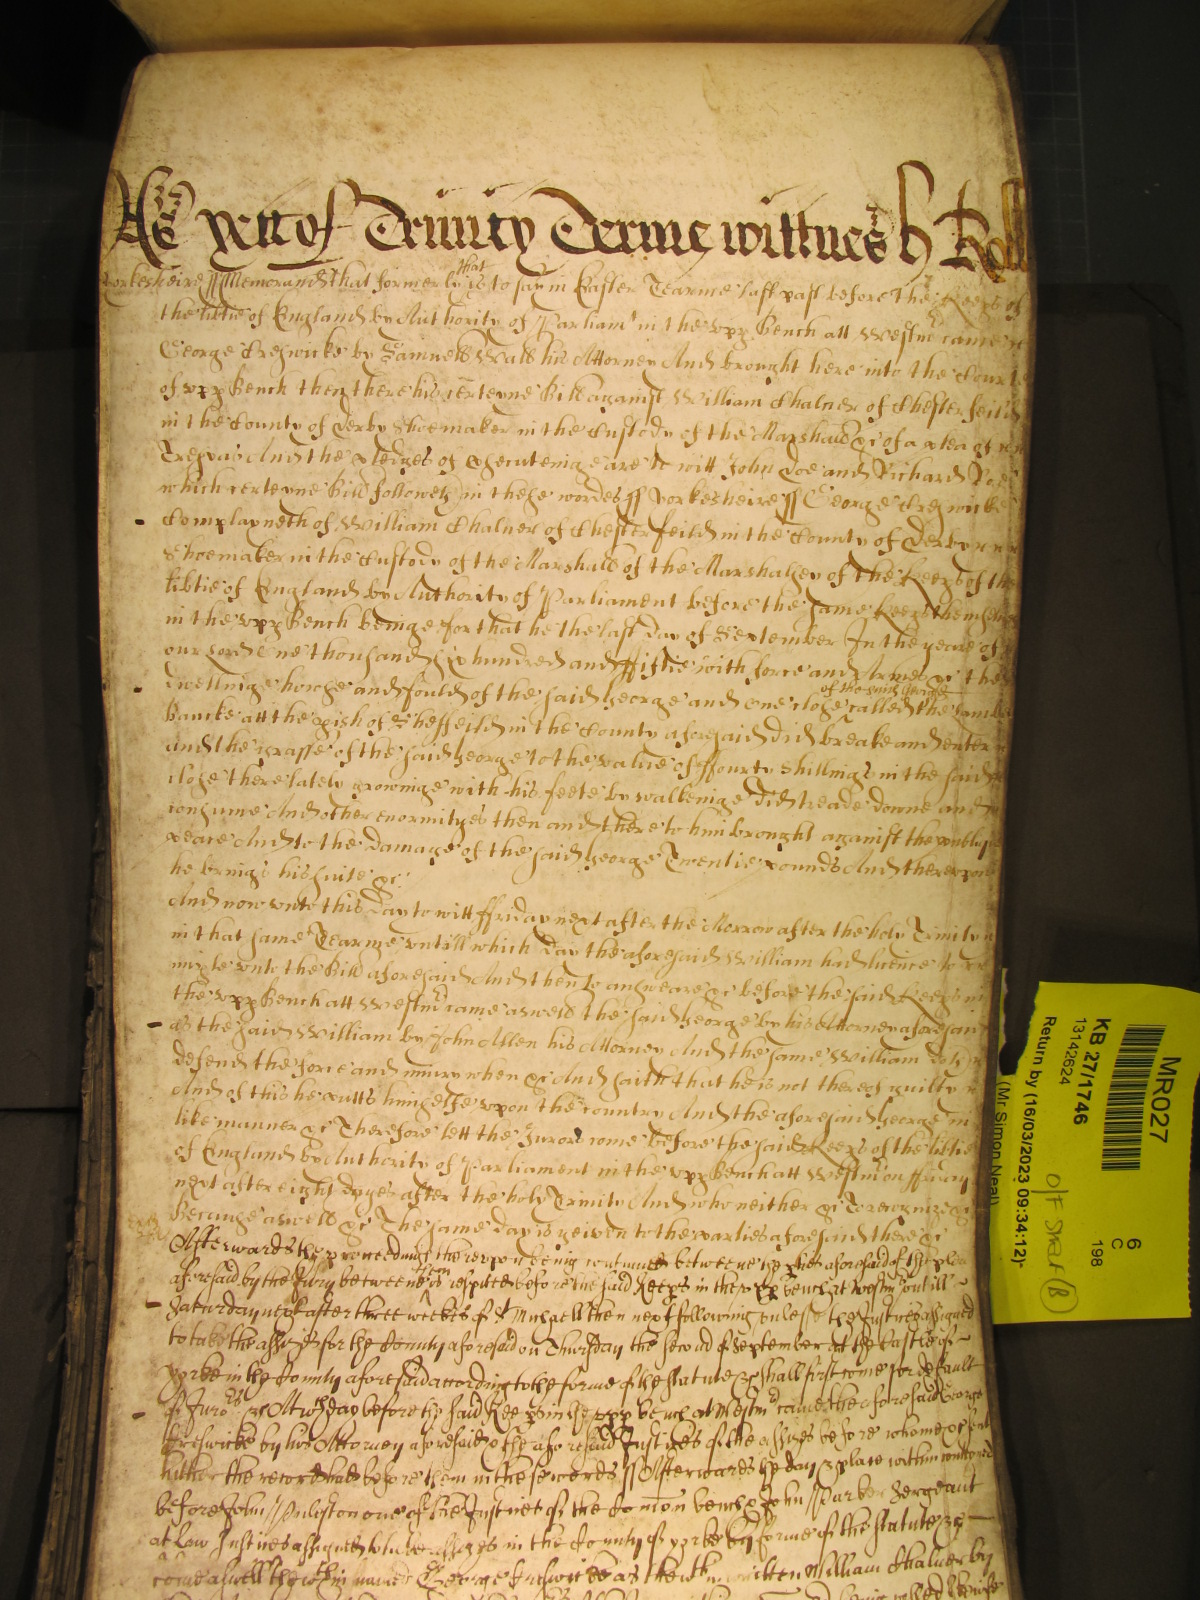 As yett of Trinity Terme wittnes H Roll
Yorkesheire ss Memorand that formerly that is to say in Easter Tearme last past before the Keeps of
the libtie of England by Authority of Parliamt in the upp Bench att Westm came
George Creswicke by Samuell Wall his Attorney And brought here into the Court
of upp Bench then there his certeyne Bill against William Chalner of Chesterfeild
in the County of Derby Shoemaker in the Custody of the Marshall &c of a plea of
Trespas And the pledges of prosecuteinge are to witt John Doe and Richard Roe
which certeyne Bill followeth in these wordes ss Yorkesheire ss George Creswicke
Complayneth of William Chalner of Chesterfeild in the County of Derby
Shoemaker in the Custody of the Marshall of the Marshalsey of the Keeps of the
libtie of England by Authority of Parliament before the same Keeps themselves
in the upp Bench beinge for that he the last day of September In the yeare of
our Lord One thousand six hundred and ffiftie with force and Armes &c the
dwellinge howse and fould of the said George and one close of the said George called the
Bancke att the pish of Sheffeild in the County aforesaid did breake and enter
and the grasse of the said George to the value of ffourty shillings in the said
close there lately growinge with his feete by walkeinge did treade downe and
consume And other enormityes then and there to him brought against the publique
peace And to the damage of the said George Twentie pounds And thereupon
he brings his suite &c
And now unto this day to witt ffriday next after the Morrow after the holy Trinity
in that same Tearme untill which day the aforesaid William had licence to
imple unto the Bill aforesaid And then to answeare &c before the said Keeps in
the upp Bench att Westm came aswell the said George by his Attorney aforesaid
as the said William by John Allen his Attorney And the same William doth
defend the force and iniury when &c And saith that he is not thereof guilty
And of this he putts himselfe upon the country And the aforesaid George in
like manner &c Therefore lett the Jurors come before the said Keeps of the libtie
of England by Authority of Parliament in the upp Bench att Westm on ffriday
next after eight dayes after the holy Trinity And who neither &c To recognize &c
Because aswell &c The same day is geiven to the parties aforesaid there &c
Afterwards the proceedings thereupon being continued betweene the pties aforesaid of the plea
aforesaid by the Jury betweene them is respitted before the said Keeps in the upp bench at Westm untill
Saturday next after three weekes of St Michaell then next following unlesse the Justices assigned
to take the assizes for the County aforesaid on Thursday the second of September at the Castle of
Yorke in the County aforesaid according to the forme of the statute &c shall first come for default
of Jurors &c At wch day before the said Keeps in the upp bench at Westm came the aforesaid George
Creswicke by his Attorney aforesaid & the aforesaid Justices of the assizes before whome &c sent
hither the record had before them in these words ss Afterwards the day & place within conteyned
before John Puleston one of the Justices of the Comon bench & John Parker Sergeant
at Law Justices assigned to take assizes in the County of Yorke by forme of the statute &c
come aswell the within named George Creswicke as the within written William Chalner by
MR027
KB 27/1746
13142624
6
C
198
Return by (16/03/2023 09:34:12)
(Mr Simon Neal)
O/F SHELF (B)